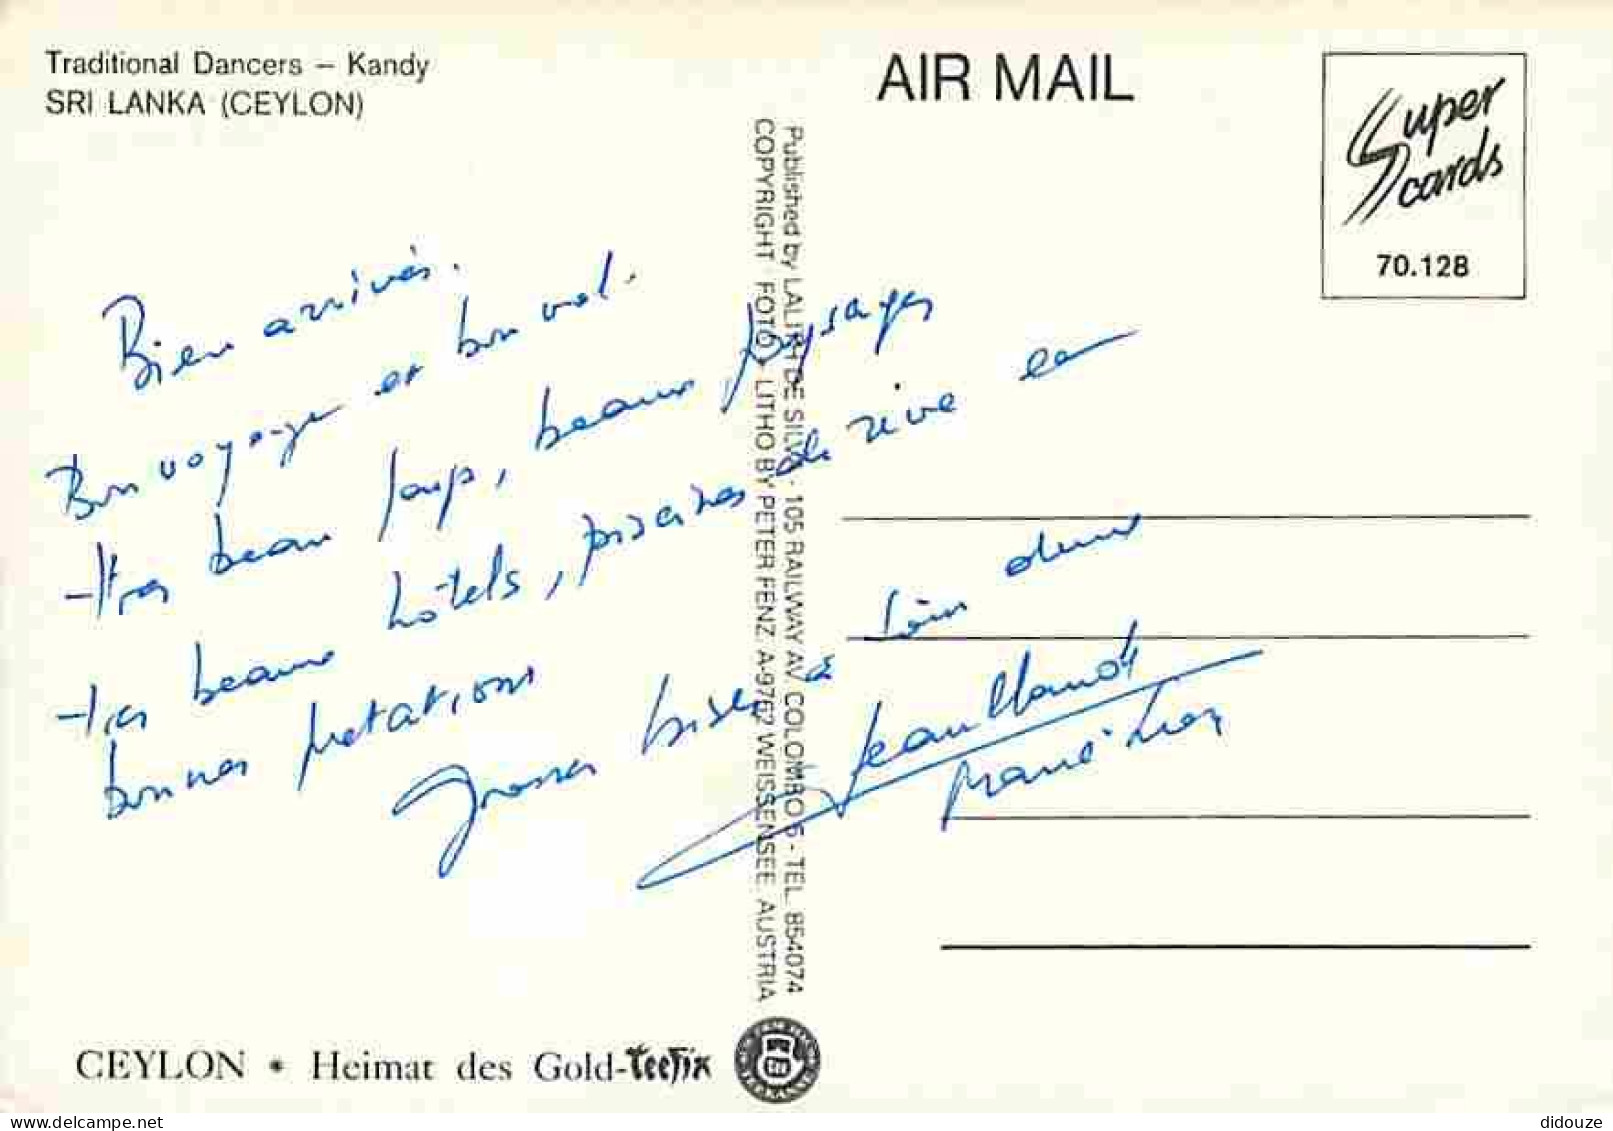 Traditional Dancers – Kandy
SRI LANKA (CEYLON)
AIR MAIL
Super
cards
70.128
Bien arrivés.
Bon voyage et bon vol.
très beau temps, beaux paysages
très beaux hôtels, piscines de rêve et
bonnes prestations
Grosses bises à tous deux
Jean Claude
Published by LALITH DE SILVA - 105 RAILWAY AV. COLOMBO 5 - TEL. 854074
COPYRIGHT · FOTO + LITHO BY PETER FENZ, A-9762 WEISSENSEE, AUSTRIA
CEYLON • Heimat des Gold-Teefix
delcampe.net
didouze